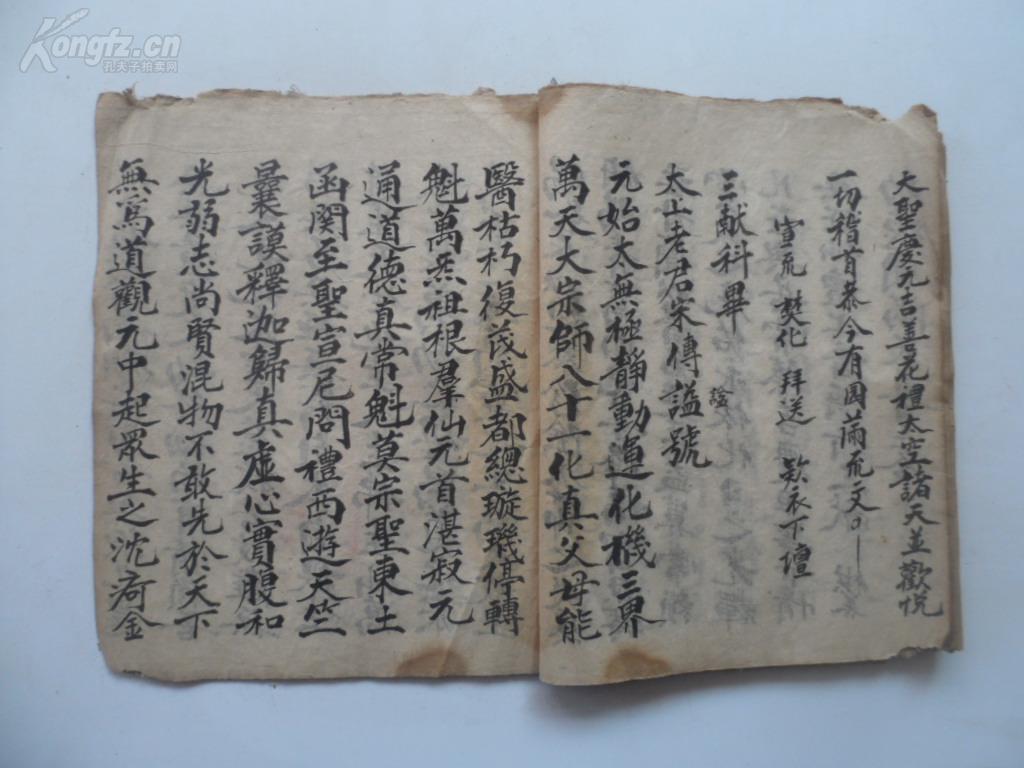 Kongfz.cn
孔夫子拍卖网
大聖慶元吉善花禮太空諸天並歡悅
一切稽首恭今有圓滿䟽文
宣䟽 焚化 拜送 欵衣下壇
三献科畢
太上老君宋傳謚號
元始太無極靜動運化機三界
萬天大宗師八十一化真父母能
醫枯朽復茂盛都總璇璣停轉
魁萬炁祖根羣仙元首湛寂元
通道德真常魁莫宗聖東土
函関至聖宣尼問禮西遊天竺
曩謨釋迦歸真虛心實腹和
光弱志尚賢混物不敢先於天下
無為道觀元中起眾生之沈疴金